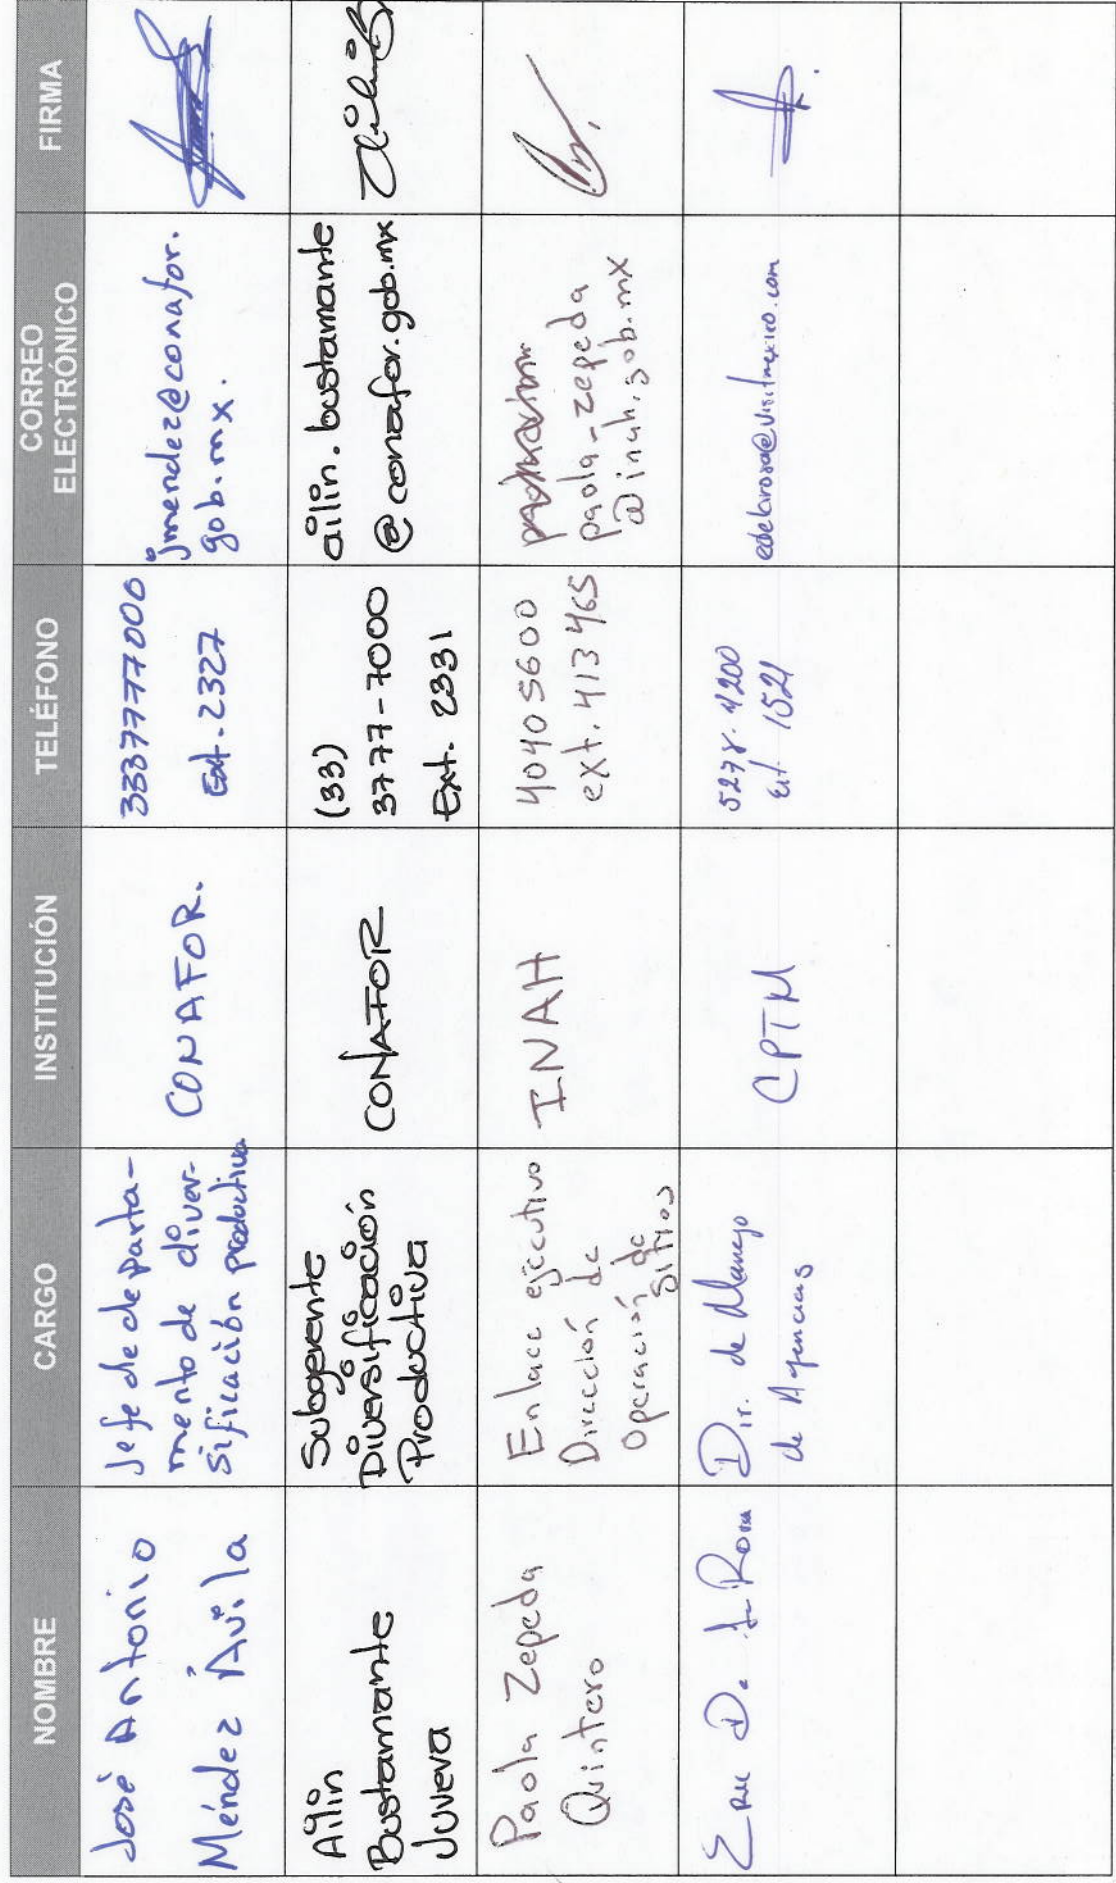 NOMBRE
CARGO
INSTITUCIÓN
TELÉFONO
CORREO
ELECTRÓNICO
FIRMA
José Antonio
Méndez Ávila
Jefe de departa-
mento de diver-
sificación productiva
CONAFOR.
3337777000
Ext. 2327
jmendez@conafor.
gob.mx.
Ailin
Bustamante
Juvera
Subgerente
Diversificación
Productiva
CONAFOR
(33)
3777-7000
Ext. 2331
ailin.bustamante
@conafor.gob.mx
Paola Zepeda
Quintero
Enlace ejecutivo
Dirección de
Operación de
Sitios
INAH
40405600
ext. 413465
paola-zepeda
@inah.gob.mx
De la Rosa
Dir. de Manejo
de Agencias
CPTM
5278-4200
Ext. 1521
edelarosa@visitmexico.com